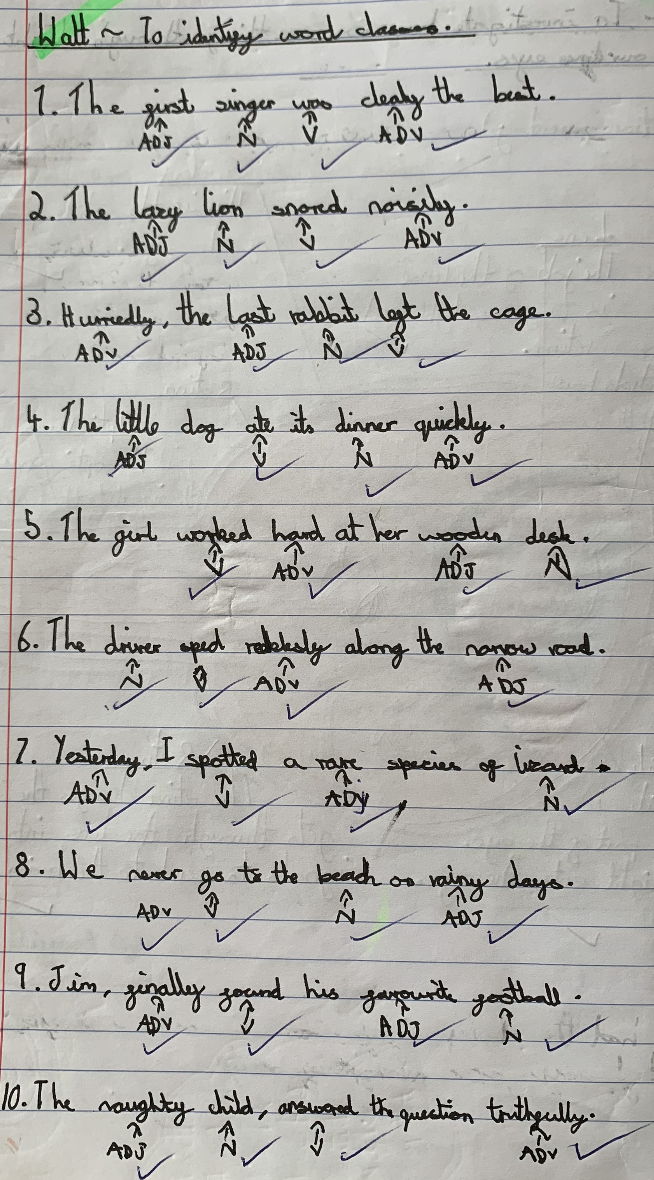 Walt ~ To identify word classes.
1. The first singer was clealy the best.
ADJ N V ADV
2. The lazy lion snored noisily.
ADJ N V ADV
3. Hurriedly, the last rabbit left the cage.
ADV ADJ N V
4. The little dog ate its dinner quickly.
ADJ V N ADV
5. The girl worked hard at her wooden desk.
V ADV ADJ N
6. The driver sped recklessly along the narrow road.
N V ADV ADJ
7. Yesterday, I spotted a rare species of lizard.
ADV V ADJ N
8. We never go to the beach on rainy days.
ADV V N ADJ
9. Jim, finally found his favourite football.
ADV V ADJ N
10. The naughty child, answered the question truthfully.
ADJ N V ADV